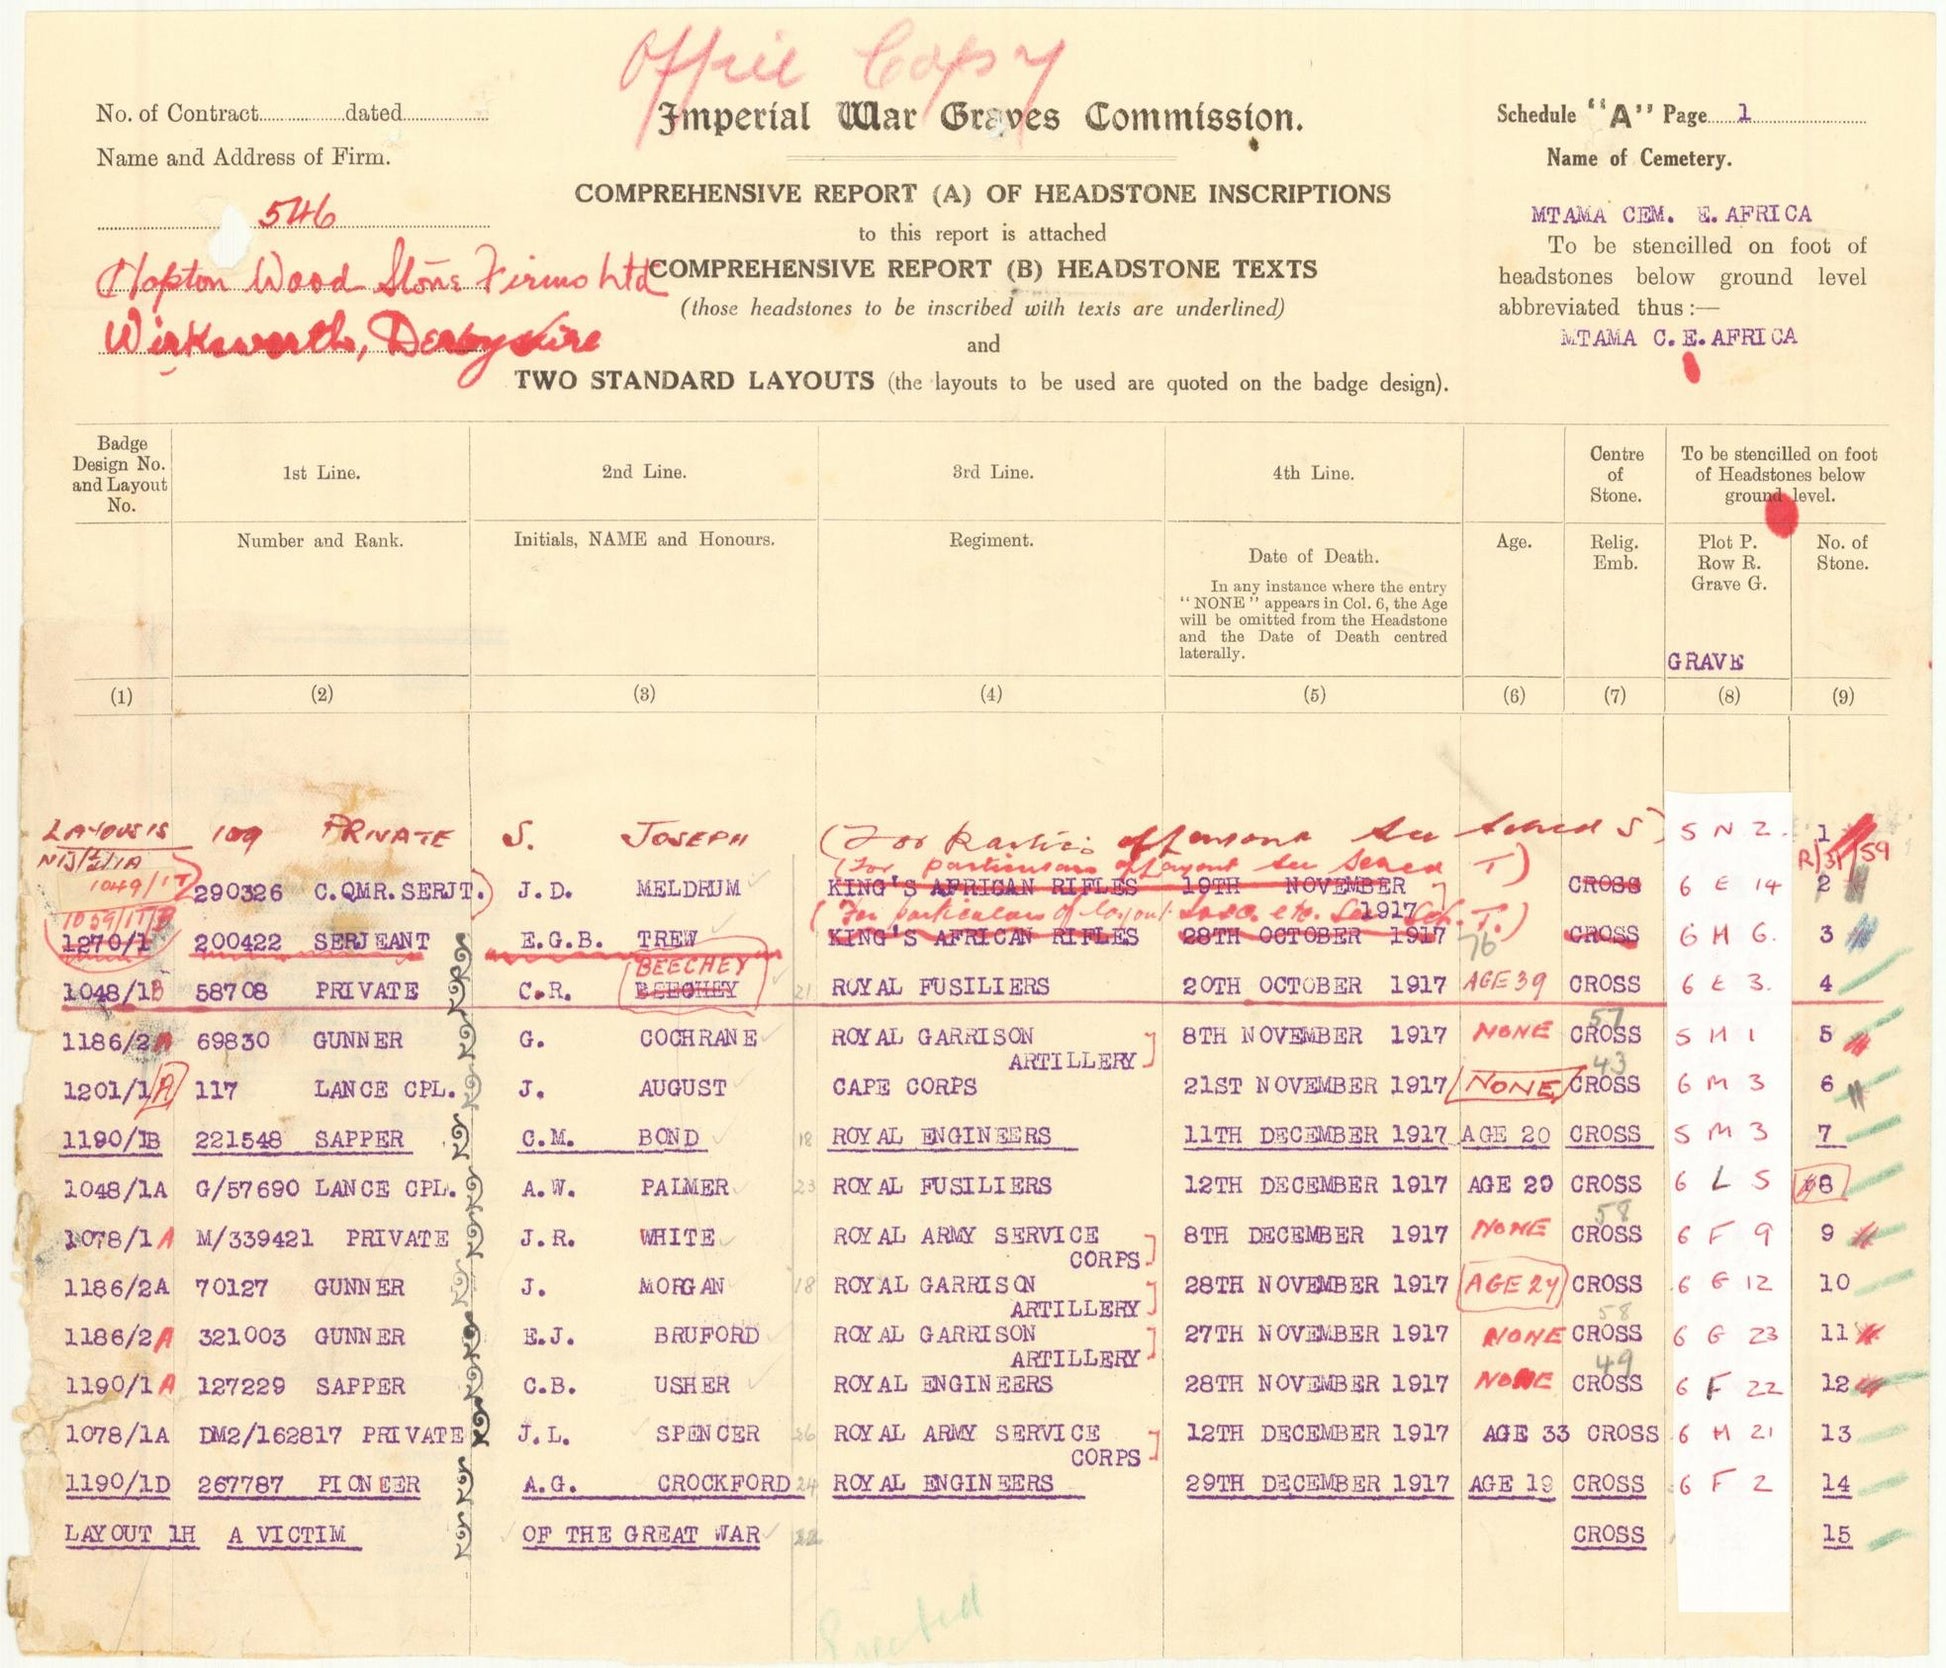 Office Copy
No. of Contract............dated............
Imperial War Graves Commission.
Schedule "A" Page 1
Name and Address of Firm.
Name of Cemetery.
546
COMPREHENSIVE REPORT (A) OF HEADSTONE INSCRIPTIONS
MTAMA CEM. E. AFRICA
to this report is attached
To be stencilled on foot of
Hopton Wood Stone Firms Ltd
COMPREHENSIVE REPORT (B) HEADSTONE TEXTS
headstones below ground level
(those headstones to be inscribed with texts are underlined)
abbreviated thus :—
Wirksworth, Derbyshire
and
MTAMA C. E. AFRICA
TWO STANDARD LAYOUTS (the layouts to be used are quoted on the badge design).
Badge Design No. and Layout No.
1st Line.
2nd Line.
3rd Line.
4th Line.
Centre of Stone.
To be stencilled on foot of Headstones below ground level.
Number and Rank.
Initials, NAME and Honours.
Regiment.
Date of Death.
In any instance where the entry
"NONE" appears in Col. 6, the Age
will be omitted from the Headstone
and the Date of Death centred
laterally.
Age.
Relig. Emb.
Plot P. Row R. Grave G.
No. of Stone.
GRAVE
(1) (2) (3) (4) (5) (6) (7) (8) (9)
LAYOUT 15 109 PRIVATE S. JOSEPH (For Partics of persona See Sched S) 5 N 2. 1
R/31/59
(For particulars of layout See Sched T)
1049/1T 290326 C.QMR.SERJT.) J.D. MELDRUM KING'S AFRICAN RIFLES 19TH NOVEMBER 1917 CROSS 6 E 14 2
1059/1T/B
(For particulars of layout etc. See Sch. T.)
1270/1 200422 SERJEANT E.G.B. TREW KING'S AFRICAN RIFLES 28TH OCTOBER 1917 76 CROSS 6 H 6. 3
BEECHEY
1048/1B 58708 PRIVATE C.R. BEECHEY 21 ROYAL FUSILIERS 20TH OCTOBER 1917 AGE 39 CROSS 6 E 3. 4
57
1186/2A 69830 GUNNER G. COCHRANE ROYAL GARRISON ARTILLERY 8TH NOVEMBER 1917 NONE CROSS 5 H 1 5
43
1201/1A 117 LANCE CPL. J. AUGUST CAPE CORPS 21ST NOVEMBER 1917 NONE CROSS 6 M 3 6
1190/1B 221548 SAPPER C.M. BOND 18 ROYAL ENGINEERS 11TH DECEMBER 1917 AGE 20 CROSS 5 M 3 7
1048/1A G/57690 LANCE CPL. A.W. PALMER 23 ROYAL FUSILIERS 12TH DECEMBER 1917 AGE 29 CROSS 6 L 5 8
58
1078/1A M/339421 PRIVATE J.R. WHITE ROYAL ARMY SERVICE CORPS 8TH DECEMBER 1917 NONE CROSS 6 F 9 9
1186/2A 70127 GUNNER J. MORGAN 18 ROYAL GARRISON ARTILLERY 28TH NOVEMBER 1917 AGE 24 CROSS 6 G 12 10
58
1186/2A 321003 GUNNER E.J. BRUFORD ROYAL GARRISON ARTILLERY 27TH NOVEMBER 1917 NONE CROSS 6 G 23 11
49
1190/1A 127229 SAPPER C.B. USHER ROYAL ENGINEERS 28TH NOVEMBER 1917 NONE CROSS 6 F 22 12
1078/1A DM2/162817 PRIVATE J.L. SPENCER 26 ROYAL ARMY SERVICE CORPS 12TH DECEMBER 1917 AGE 33 CROSS 6 H 21 13
1190/1D 267787 PIONEER A.G. CROCKFORD 24 ROYAL ENGINEERS 29TH DECEMBER 1917 AGE 19 CROSS 6 F 2 14
LAYOUT 1H A VICTIM OF THE GREAT WAR 22 CROSS 15
Erected